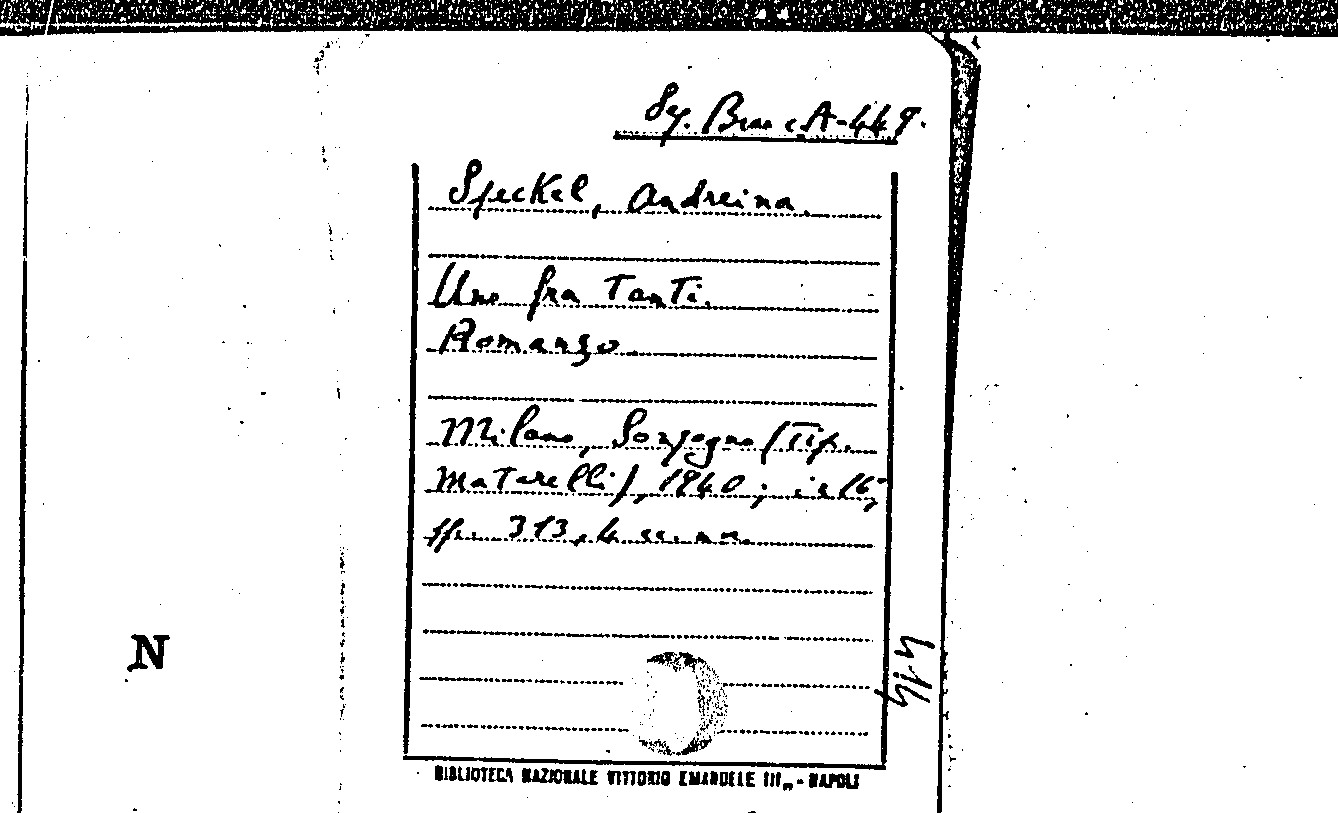 Sy. Branc. A-449.
Speckel, Andreina.
Uno fra tanti.
Romanzo.
Milano, Sonzogno (Tip.
Matarelli), 1940; in 16°,
pp. 313, 4 cc. nn.
N
BIBLIOTECA NAZIONALE VITTORIO EMANUELE III„ - NAPOLI